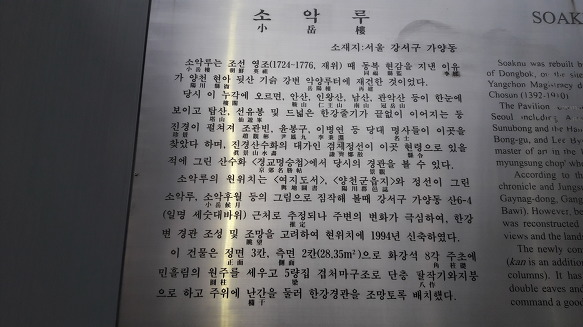 소악루
小岳樓
소재지:서울 강서구 가양동
소악루는 조선 영조(1724-1776, 재위) 때 동복 현감을 지낸 이유
小岳樓 朝鮮 英祖 同福 縣監
가 양천 현아 뒷산 기슭 강변 악양루터에 재건한 것이었다.
陽川 縣衙 岳陽樓 再建
당시 이 누각에 오르면, 안산, 인왕산, 남산, 관악산 등이 한눈에
樓閣 鞍山 仁王山 南山 冠岳山
보이고 탑산, 선유봉 및 드넓은 한강줄기가 끝없이 이어지는 등
塔山 仙遊峯
진경이 펼쳐져 조관빈, 윤봉구, 이병연 등 당대 명사들이 이곳을
趙觀彬 尹鳳九 李秉淵 名士
찾았다 하며, 진경산수화의 대가인 겸재정선이 이곳 현령으로 있을
眞景山水畵 謙齋鄭敾 縣令
적에 그린 산수화 <경교명승첩>에서 당시의 경관을 볼 수 있다.
京郊名勝帖 景觀
소악루의 원위치는 <여지도서>, <양천군읍지>와 정선이 그린
輿地圖書 陽川郡邑誌
소악루, 소악후월 등의 그림으로 짐작해 볼때 강서구 가양동 산6-4
小岳候月
(일명 세숫대바위) 근처로 추정되나 주변의 변화가 극심하여, 한강
推定
변 경관 조성 및 조망을 고려하여 현위치에 1994년 신축하였다.
眺望
이 건물은 정면 3칸, 측면 2칸(28.35m²)으로 화강석 8각 주초에
正面 側面 角 柱礎
민흘림의 원주를 세우고 5량집 겹처마구조로 단층 팔작기와지붕
圓柱 梁 八作
으로 하고 주위에 난간을 둘러 한강경관을 조망토록 배치했다.
欄干
SOAK
Soaknu was rebuilt b
of Dongbok, on the site
Yangchon Magistracy d
Chosun (1392-19
The Pavilion
Seoul including A
Sunubong and the Ha
Bong-gu, and Lee Hy
master of an in the
myungsung chop' wh
According to the
chronicle and Jungs
Gayang-dong, Gang
Bawi). However, bec
was reconstructed
views and the land
The newly con
(kan is an addition
columns). It has
double eaves and
command a good